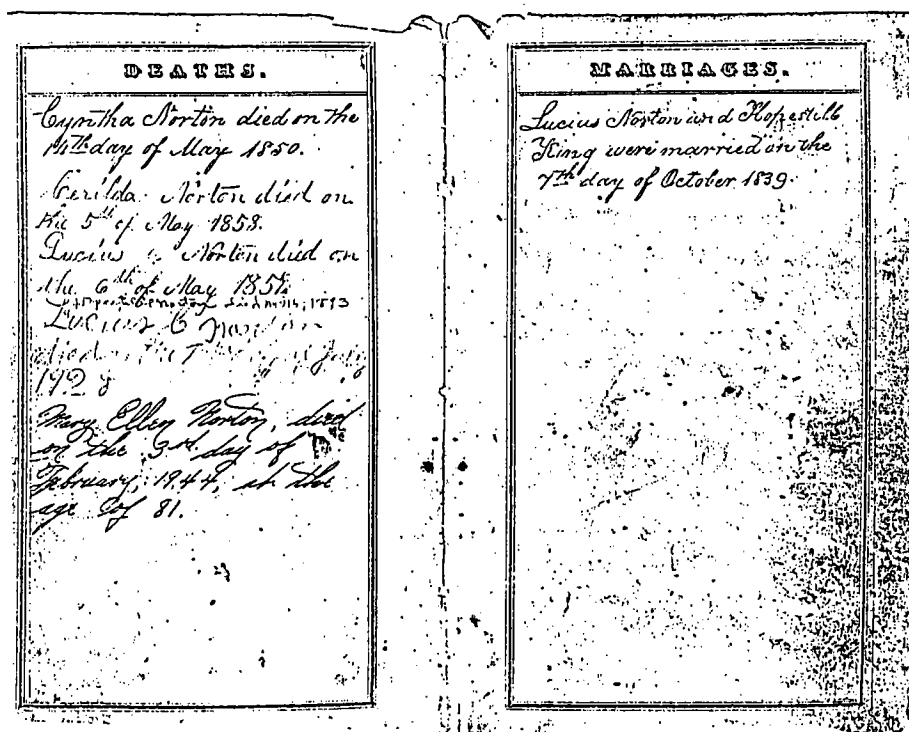 DEATHS.
Cyntha Norton died on the
14th day of May 1850.
Cerilda Norton died on
the 5th of May 1858.
Lucius Norton died on
the 6th of May
died 1893
Lucius C Norton
died on the 7 July
1928
Mary Ellen Norton, died
on the 3rd day of
February, 1944, at the
age of 81.
MARRIAGES.
Lucius Norton and Hopestill
King were married on the
7th day of October 1839.